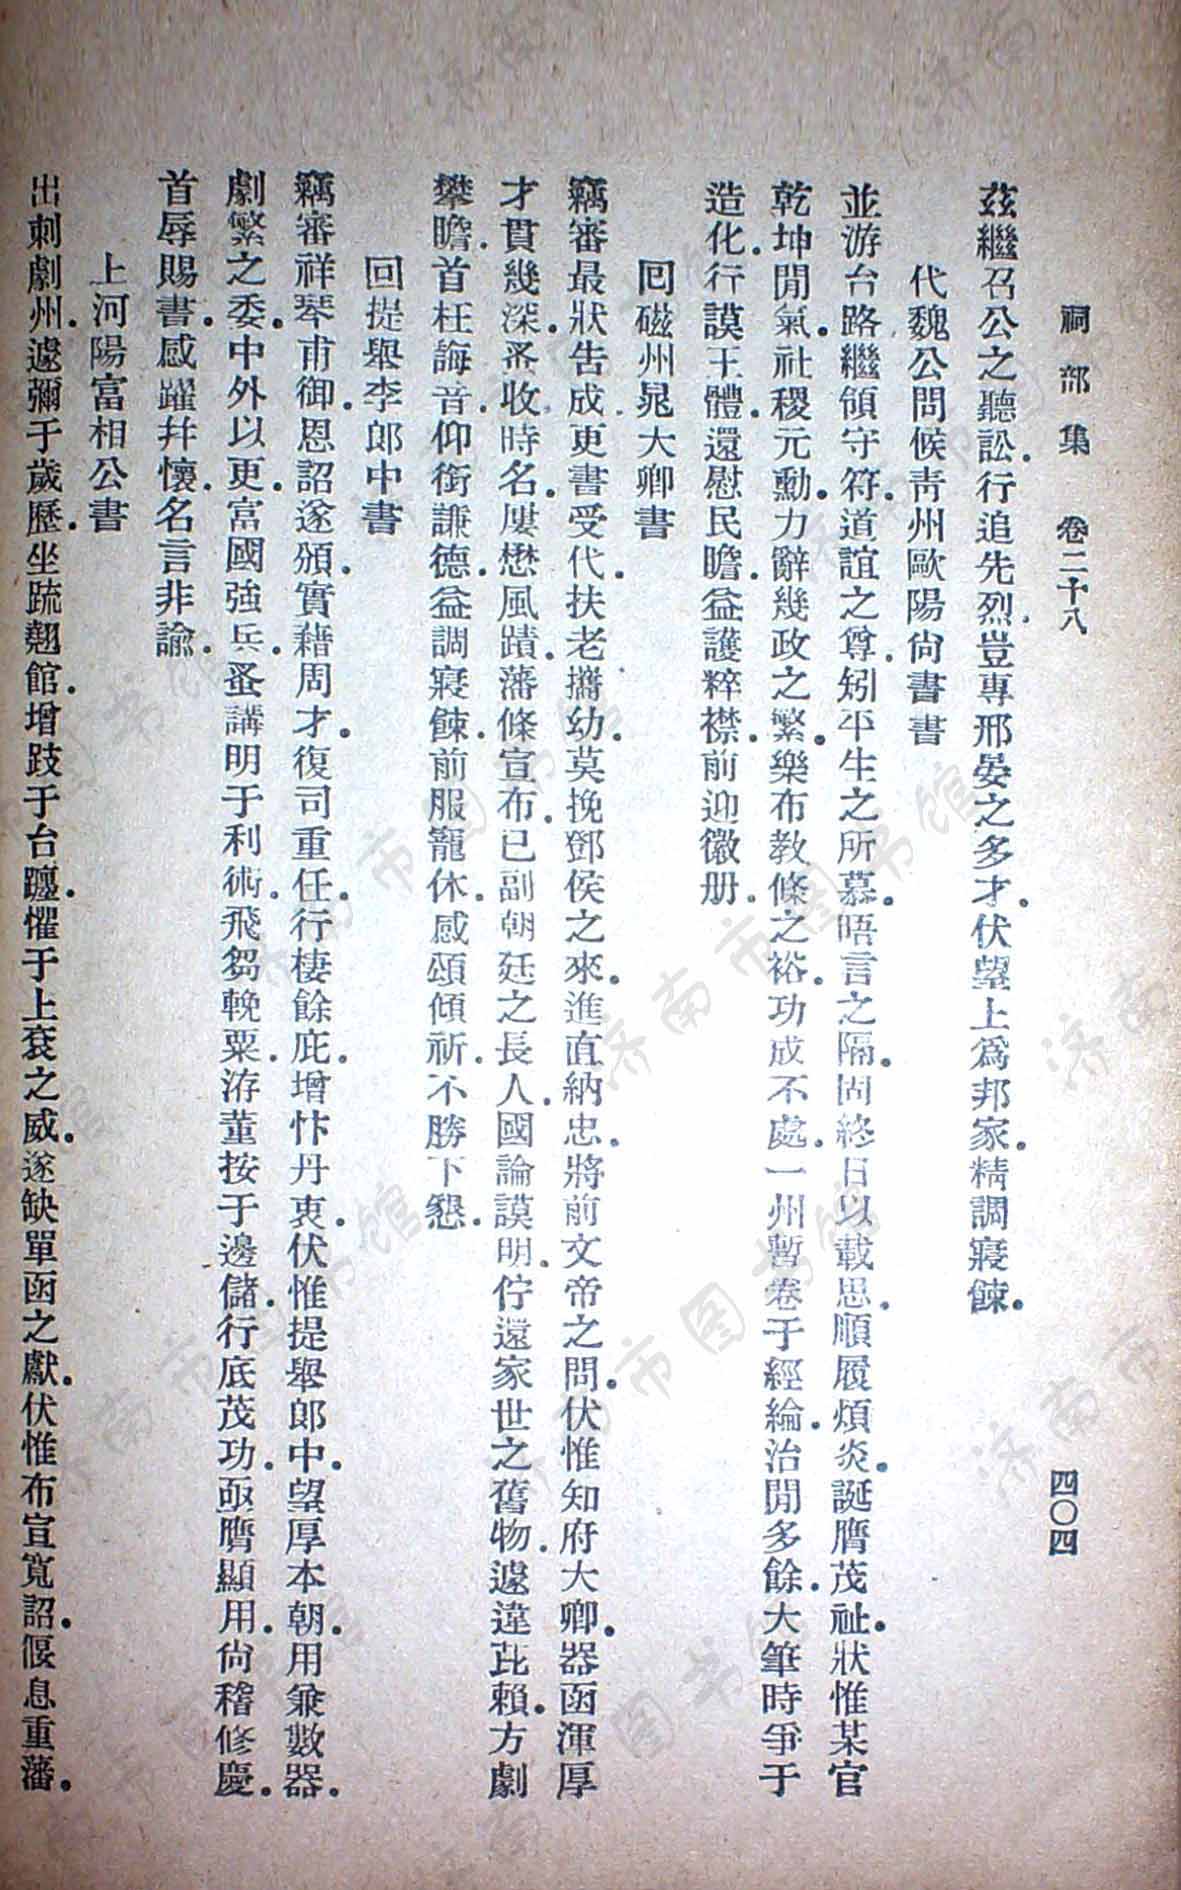 祠部集 卷二十八 四〇四
茲繼召公之聽訟.行追先烈.豈專邢晏之多才.伏望上爲邦家.精調寢餗.
代魏公問候青州歐陽尙書書
並游台路.繼領守符.道誼之尊.矧平生之所慕.晤言之隔.固終日以載思.順履煩炎.誕膺茂祉.狀惟某官
乾坤閒氣.社稷元勳.力辭幾政之繁.樂布教條之裕.功成不處.一州暫卷于經綸.治閒多餘.大筆時爭于
造化.行謨王體.還慰民瞻.益護粹襟.前迎徽册.
回磁州晁大卿書
竊審最狀告成.更書受代.扶老攜幼.莫挽鄧侯之來.進直納忠.將前文帝之問.伏惟知府大卿.器函渾厚
才貫幾深.蚤收時名.屢懋風蹟.藩條宣布.已副朝廷之長人.國論謨明.佇還家世之舊物.遽違芘賴.方劇
攀瞻.首枉誨音.仰銜謙德.益調寢餗.前服寵休.感頌傾祈.不勝下懇.
回提舉李郎中書
竊審祥琴甫御.恩詔遂頒.實藉周才.復司重任.行棲餘庇.增忭丹衷.伏惟提舉郎中.望厚本朝.用兼數器.
劇繁之委.中外以更.富國強兵.蚤講明于利術.飛芻輓粟.洊董按于邊儲.行底茂功.亟膺顯用.尙稽修慶.
首辱賜書.感躍幷懷.名言非諭.
上河陽富相公書
出刺劇州.遽彌于歲歷.坐疏翹館.增跂于台躔.懼于上袞之威.遂缺單函之獻.伏惟布宣寬詔.偃息重藩.